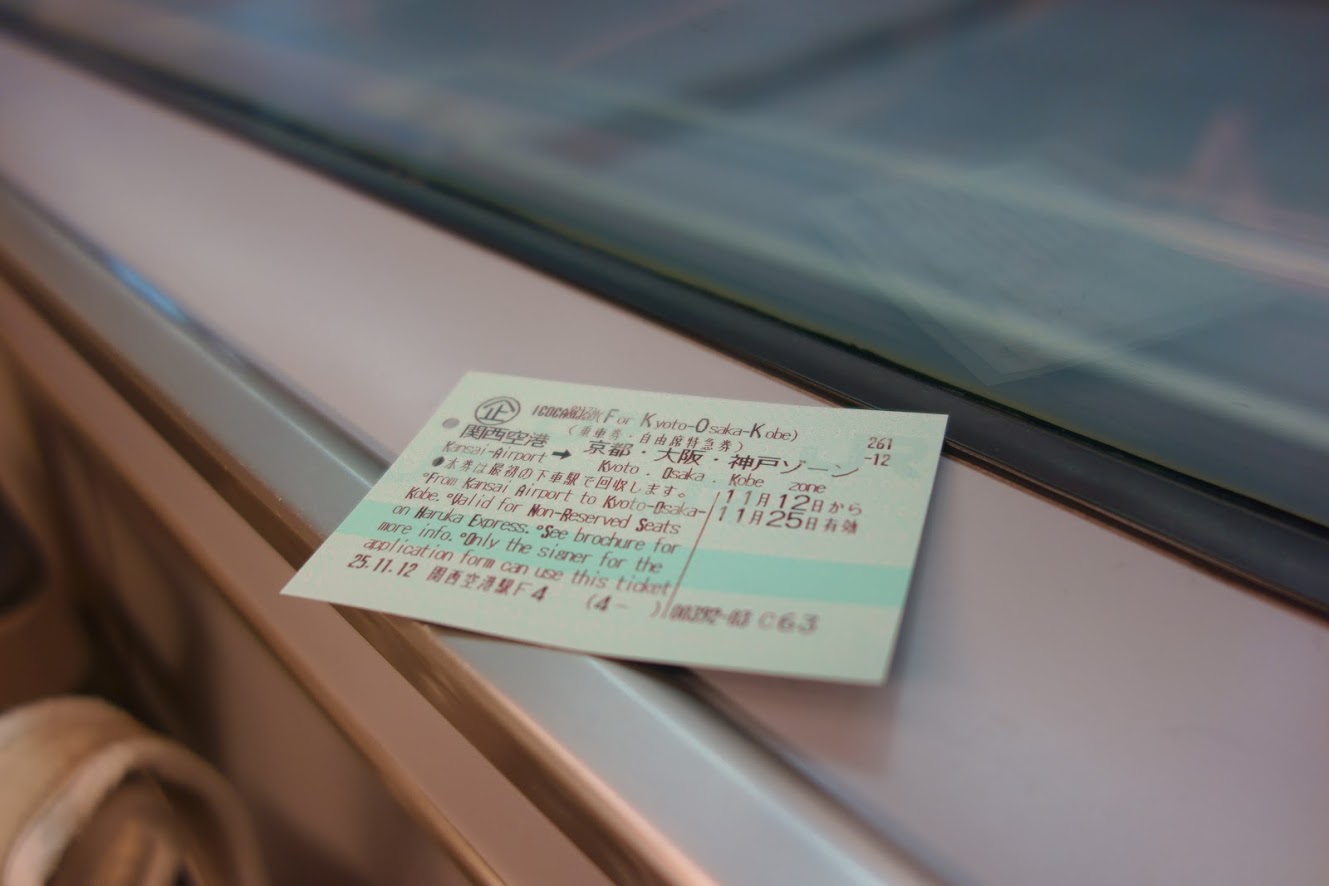 企 ICOCA&HARUKA(For Kyoto-Osaka-Kobe)
(乗車券・自由席特急券)
関西空港 ➡ 京都・大阪・神戸ゾーン
Kansai-Airport Kyoto . Osaka . Kobe zone
261
-12
●本券は最初の下車駅で回収します。
°From Kansai Airport to Kyoto-Osaka-
Kobe. °Valid for Non-Reserved Seats
on Haruka Express. °See brochure for
more info. °Only the signer for the
application form can use this ticket
11月12日から
11月25日有効
25.11.12 関西空港駅F4 (4- )
00392-03 C63